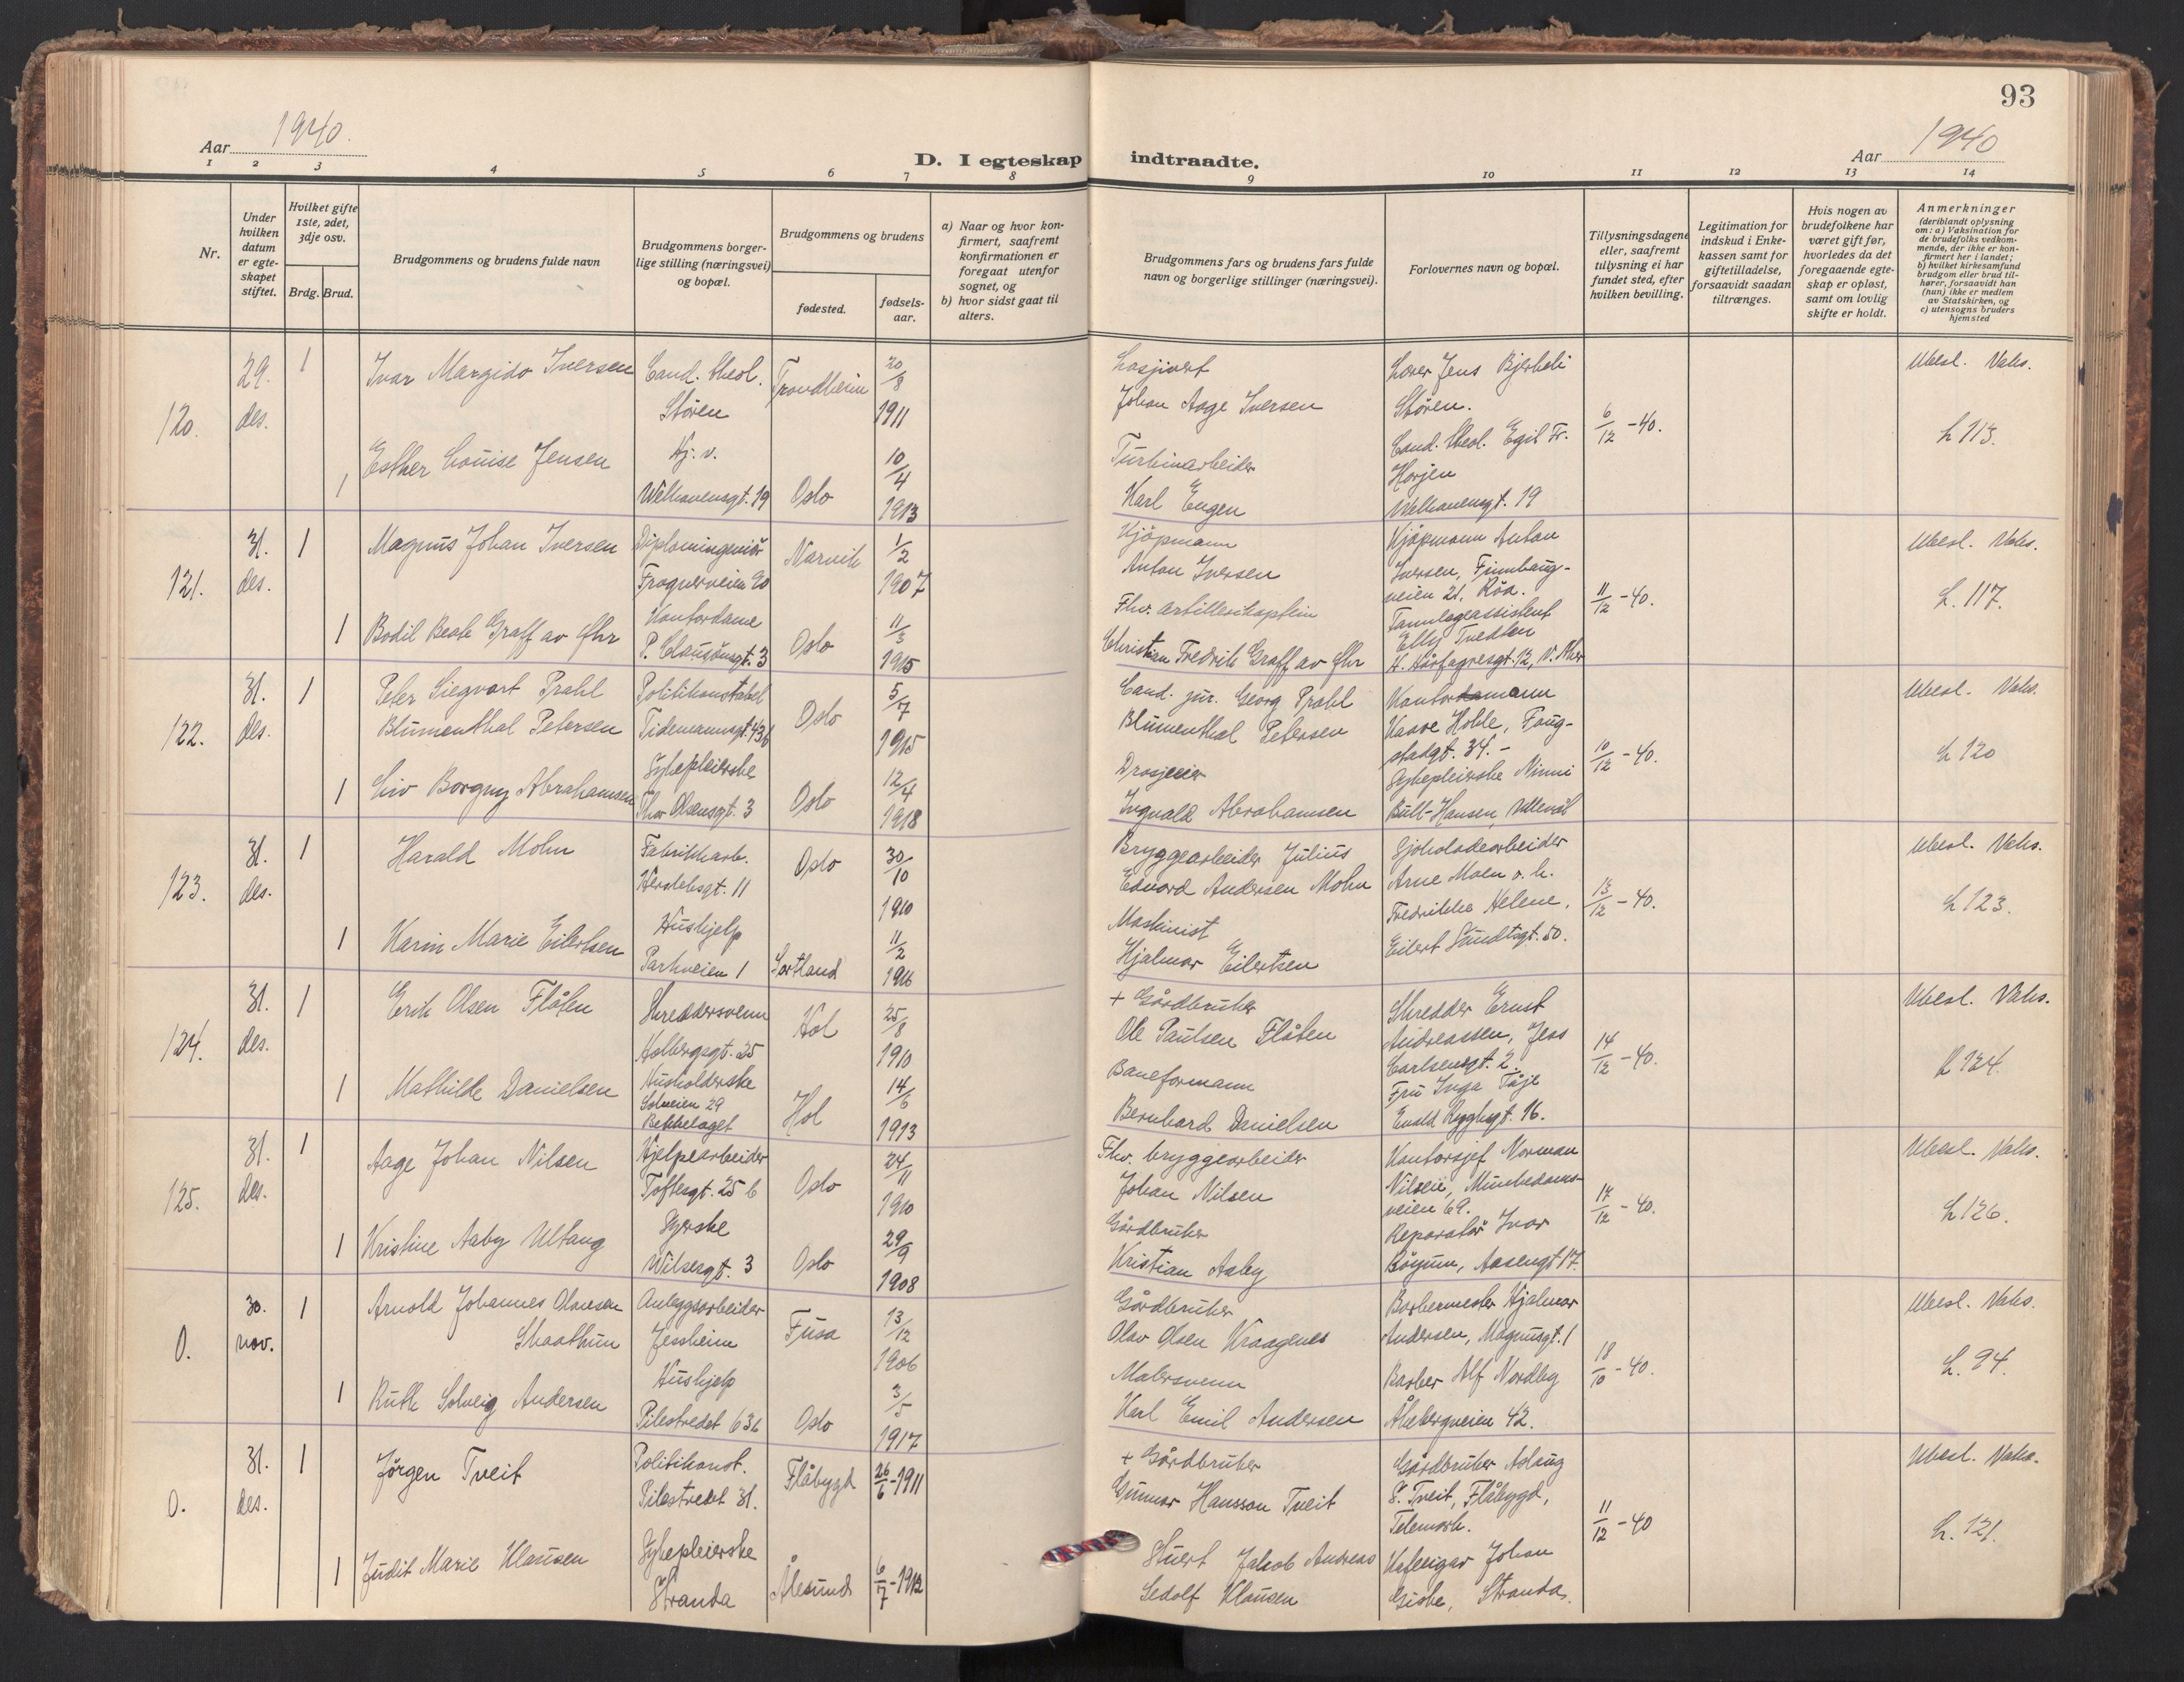 93
Aar 1940.
D. I egteskap indtraadte.
Aar 1940
1 2 3 4 5 6 7 8 9 10 11 12 13 14
Nr.
Under hvilken datum er egteskapet stiftet.
Hvilket gifte 1ste, 2det, 3dje osv.
Brdg. Brud.
Brudgommens og brudens fulde navn
Brudgommens borgerlige stilling (næringsvei) og bopæl.
Brudgommens og brudens
fødested.
fødselsaar.
a) Naar og hvor konfirmert, saafremt konfirmationen er foregaat utenfor sognet, og
b) hvor sidst gaat til alters.
Brudgommens fars og brudens fars fulde navn og borgerlige stillinger (næringsvei).
Forlovernes navn og bopæl.
Tillysningsdagene eller, saafremt tillysning ei har fundet sted, efter hvilken bevilling.
Legitimation for indskud i Enkekassen samt for giftetilladelse, forsaavidt saadan tiltrænges.
Hvis nogen av brudefolkene har været gift før, hvorledes da det foregaaende egteskap er opløst, samt om lovlig skifte er holdt.
Anmerkninger
(deriblandt oplysning om: a) Vaksination for de brudefolks vedkommende, der ikke er konfirmert her i landet;
b) hvilket kirkesamfund brudgom eller brud tilhører, forsaavidt han (hun) ikke er medlem av Statskirken, og
c) utensogns bruders hjemsted
120. 29. des. 1 Ivar Margido Iversen Cand. theol. Støren Trondheim 20/8 1911
Losjivert Johan Aage Iversen
Lærer Jens Bjerkeli Støren.
6/12 -40.
Ubesl. Vaks.
L 113.
1 Esther Louise Jensen Hj. v. Welhavensgt. 19 Oslo 10/4 1913
Turbinarbeider Karl Eugen
Cand. theol. Egil Fr. Horjen Welhavensgt. 19
121. 31. des. 1 Magnus Johan Iversen Diplomingeniør Frognerveien 20 Narvik 1/2 1907
Kjøpmann Anton Iversen
Kjøpmann Anton Iversen, Finnhaugveien 21. Røa.
11/12 -40.
Ubesl. Vaks.
L. 117.
1 Bodil Beate Graff av Ghr Kontordame P. Clausønsgt. 3 Oslo 11/3 1915
Fhv. artillerikaptein Christian Fredrik Graff av Ghr
Tannlegeassistent Elly Tvedten H. Hårfagresgt. 12, V. Aker
122. 31. des. 1 Peter Siegvart Prahl Blumenthal Petersen Politikonstabel Tidemannsgt. 43b Oslo 5/7 1915
Cand. jur. Georg Prahl Blumenthal Petersen
Kontormann Kaare Hoble, Faugstadgt. 34.-
10/12 -40.
Ubesl. Vaks.
L 120
1 Liv Borgny Abrahamsen Sykepleierske Thor Olsensgt. 3 Oslo 12/4 1918
Drosjeeier Ingvald Abrahamsen
Sykepleierske Ninni Bull-Hansen, Ullevål
123. 31. des. 1 Harald Mohn Fabrikkarb. Herslebsgt. 11 Oslo 30/10 1910
Bryggearbeider Julius Edvard Andersen Mohn
Sjokoladearbeider Arne Moen o. h.
13/12 -40.
Ubesl. Vaks.
L 123.
1 Karin Marie Eilertsen Hushjelp Parkveien 1 Sortland 11/2 1916
Maskinist Hjalmar Eilertsen
Fredrikke Helene, Eilert Sundtsgt. 50.
124. 31. des. 1 Erik Olsen Flåten Skreddersvenn Holbergsgt. 25 Hol 25/8 1910
+ Gårdbruker Ole Paulsen Flåten
Skredder Ernst Andreassen, Jess Carlsensgt. 2.
14/12 -40.
Ubesl. Vaks.
L 124.
1 Mathilde Danielsen Husholderske Solveien 29 Bekkelaget Hol 14/6 1913
Baneformann Bernhard Danielsen
Fru Inga Tåje Enald Ryghsgt. 16.
125. 31. des. 1 Aage Johan Nilsen Hjelpearbeider Toftesgt. 25 b Oslo 24/11 1910
Fhv. bryggearbeider Johan Nilsen
Kontorsjef Norman Nilseie, Munkedamsveien 69.
17/12 -40.
Ubesl. Vaks.
L 126.
1 Kristine Aaby Ultang Syerske Wilsesgt. 3 Oslo 29/9 1908
Gårdbruker Kristian Aaby
Reparatør Ivar Bøyum, Aasengt 17.
0. 30. nov. 1 Arnold Johannes Olavsen Skaathun Anleggsarbeider Jessheim Fusa 13/12 1906
Gårdbruker Olav Olsen Kraagenes
Barbermester Hjalmar Andersen, Magnusgt. 1
18/10 -40.
Ubesl. Vaks.
L. 94.
1 Ruth Solveig Andersen Hushjelp Pilestredet 63b Oslo 3/5 1917
Malersvenn Karl Emil Andersen
Barber Alf Nordby Åkebergveien 42.
0. 31. des. 1 Jørgen Tveit Politikonst. Pilestredet 31. Flåbygd 26/6-1911
+ Gårdbruker Gunnar Hansson Tveit
Gårdbruker Aslaug S. Tveit, Flåbygd, Telemark.
11/12 -40
Ubesl. Vaks.
L. 121.
1 Judit Marie Klausen Sykepleierske Stranda Ålesund 6/7-1912
Stuert Jakob Andreas Sedolf Klausen
Kafeeigar Johan Giske, Stranda.